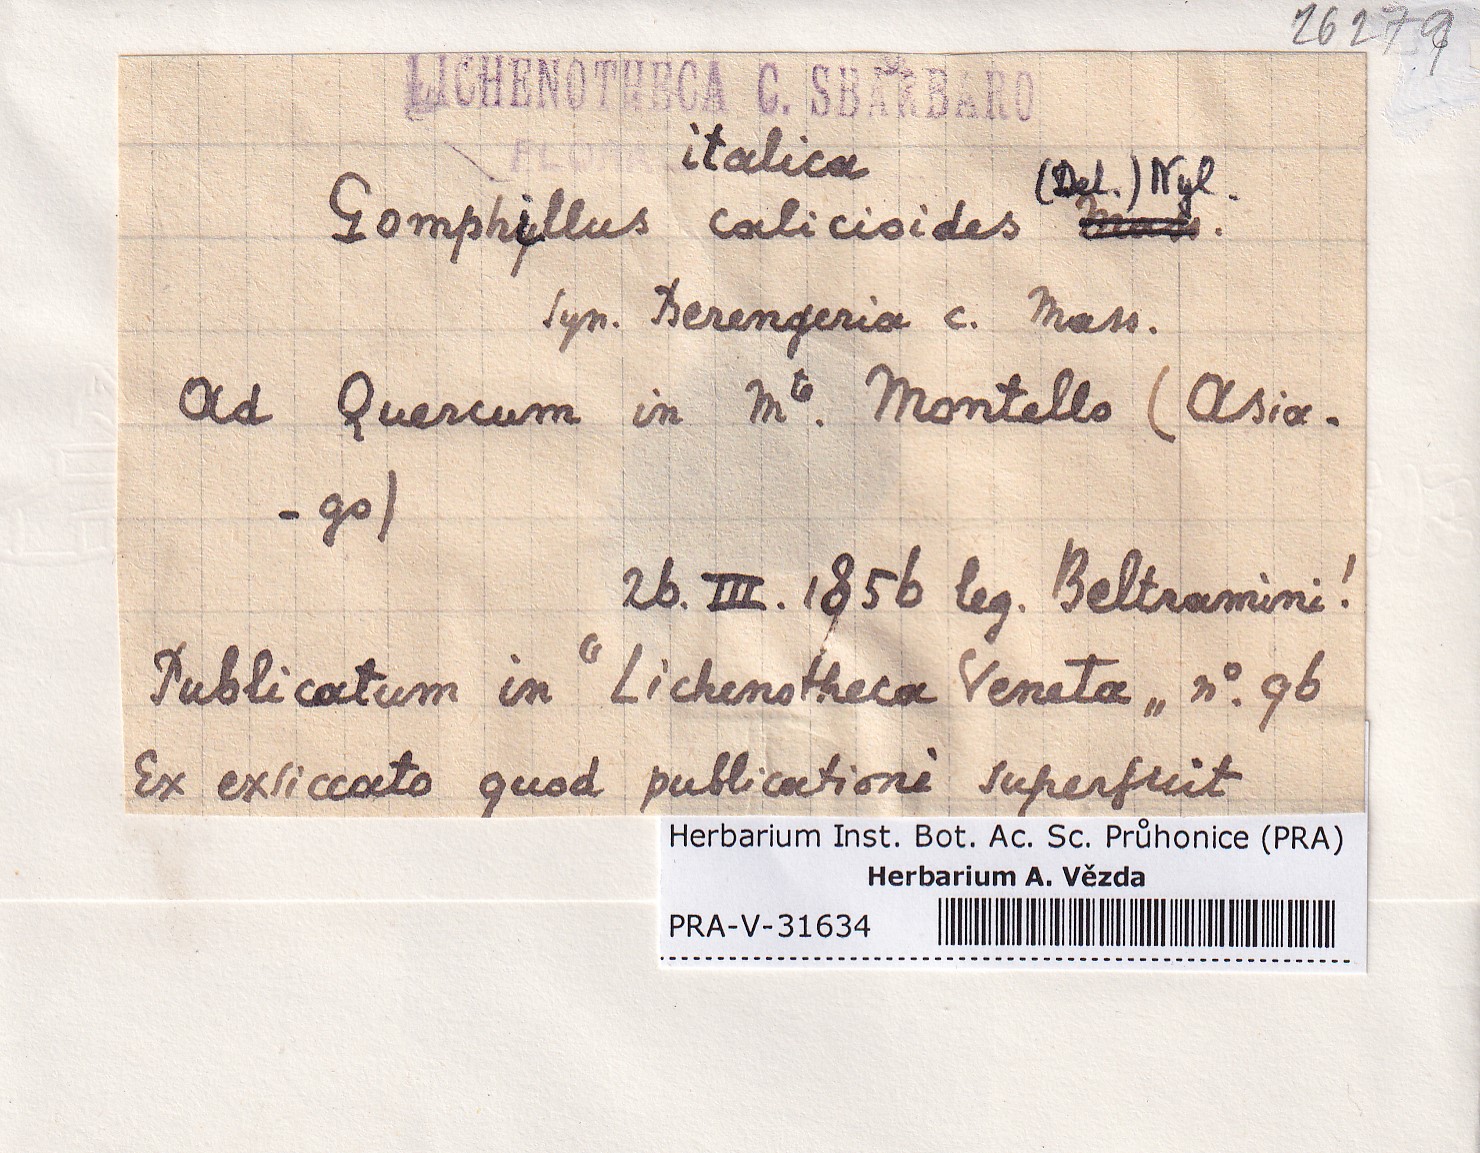 26279
LICHENOTHECA C. SBARBARO
FLORA italica
Gomphillus calicioides (Del.) Nyl.
syn. Berengeria c. Mass.
Ad Quercum in Mte. Montello (Asia-
-go)
26. III. 1856 leg. Beltramini!
Publicatum in "Lichenotheca Veneta„ n°. 96
Ex exsiccato quod publicationi superfuit
Herbarium Inst. Bot. Ac. Sc. Průhonice (PRA)
Herbarium A. Vězda
PRA-V-31634